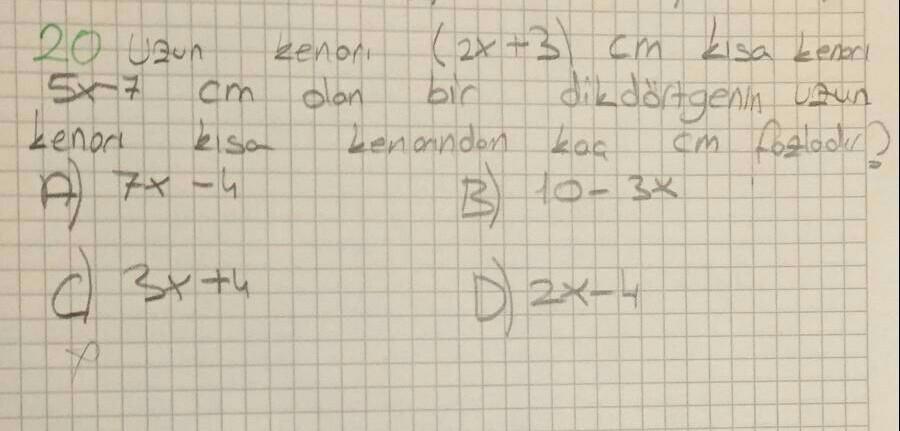 20 Uzun kenarı (2x+3) cm kısa kenarı
5x-7 cm olan bir dikdörtgenin uzun
kenarı kısa kenarından kaç cm fazladır?
A) 7x -4 B) 10- 3x
C) 3x+4 D) 2x-4